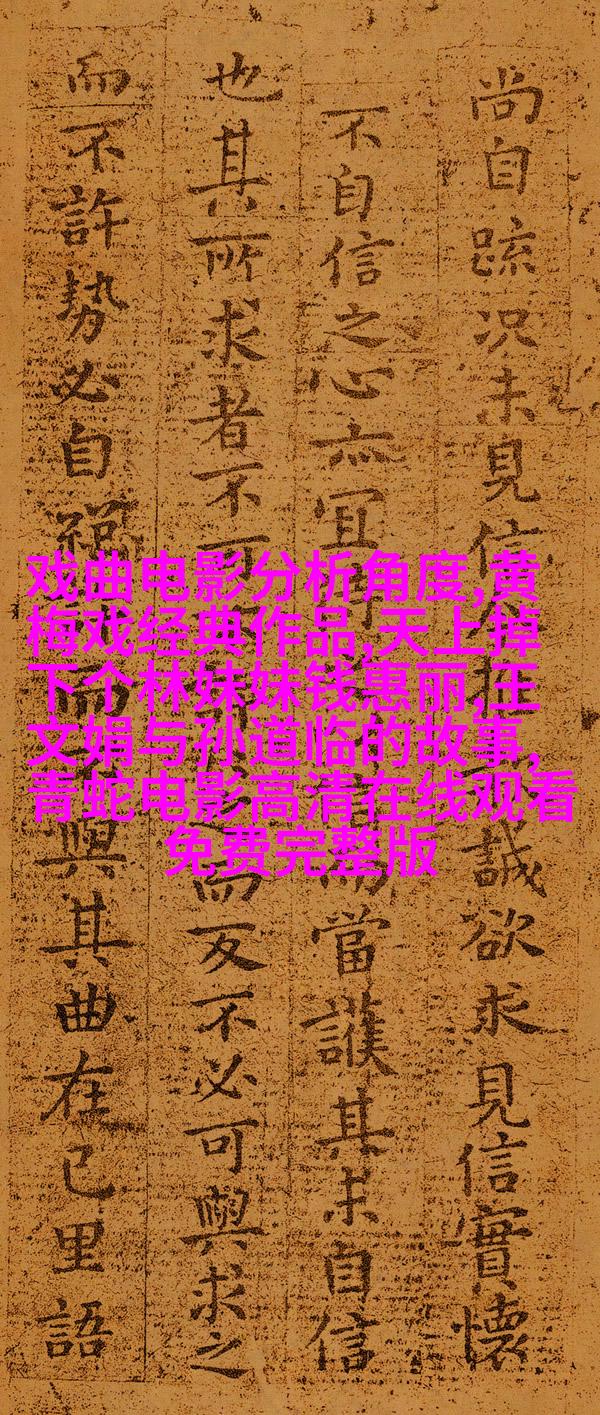 尚自疏況未見信誠欲求見信實懷
不自信之心亦宜而當護其未自信
也其所求者不可而反不必可與求之
而不許勢必自而與其曲在己里語
戏曲电影分析角度,黄
梅戏经典作品,天上掉
下个林妹妹钱惠丽,王
文娟与孙道临的故事,
青蛇电影高清在线观看
免费完整版